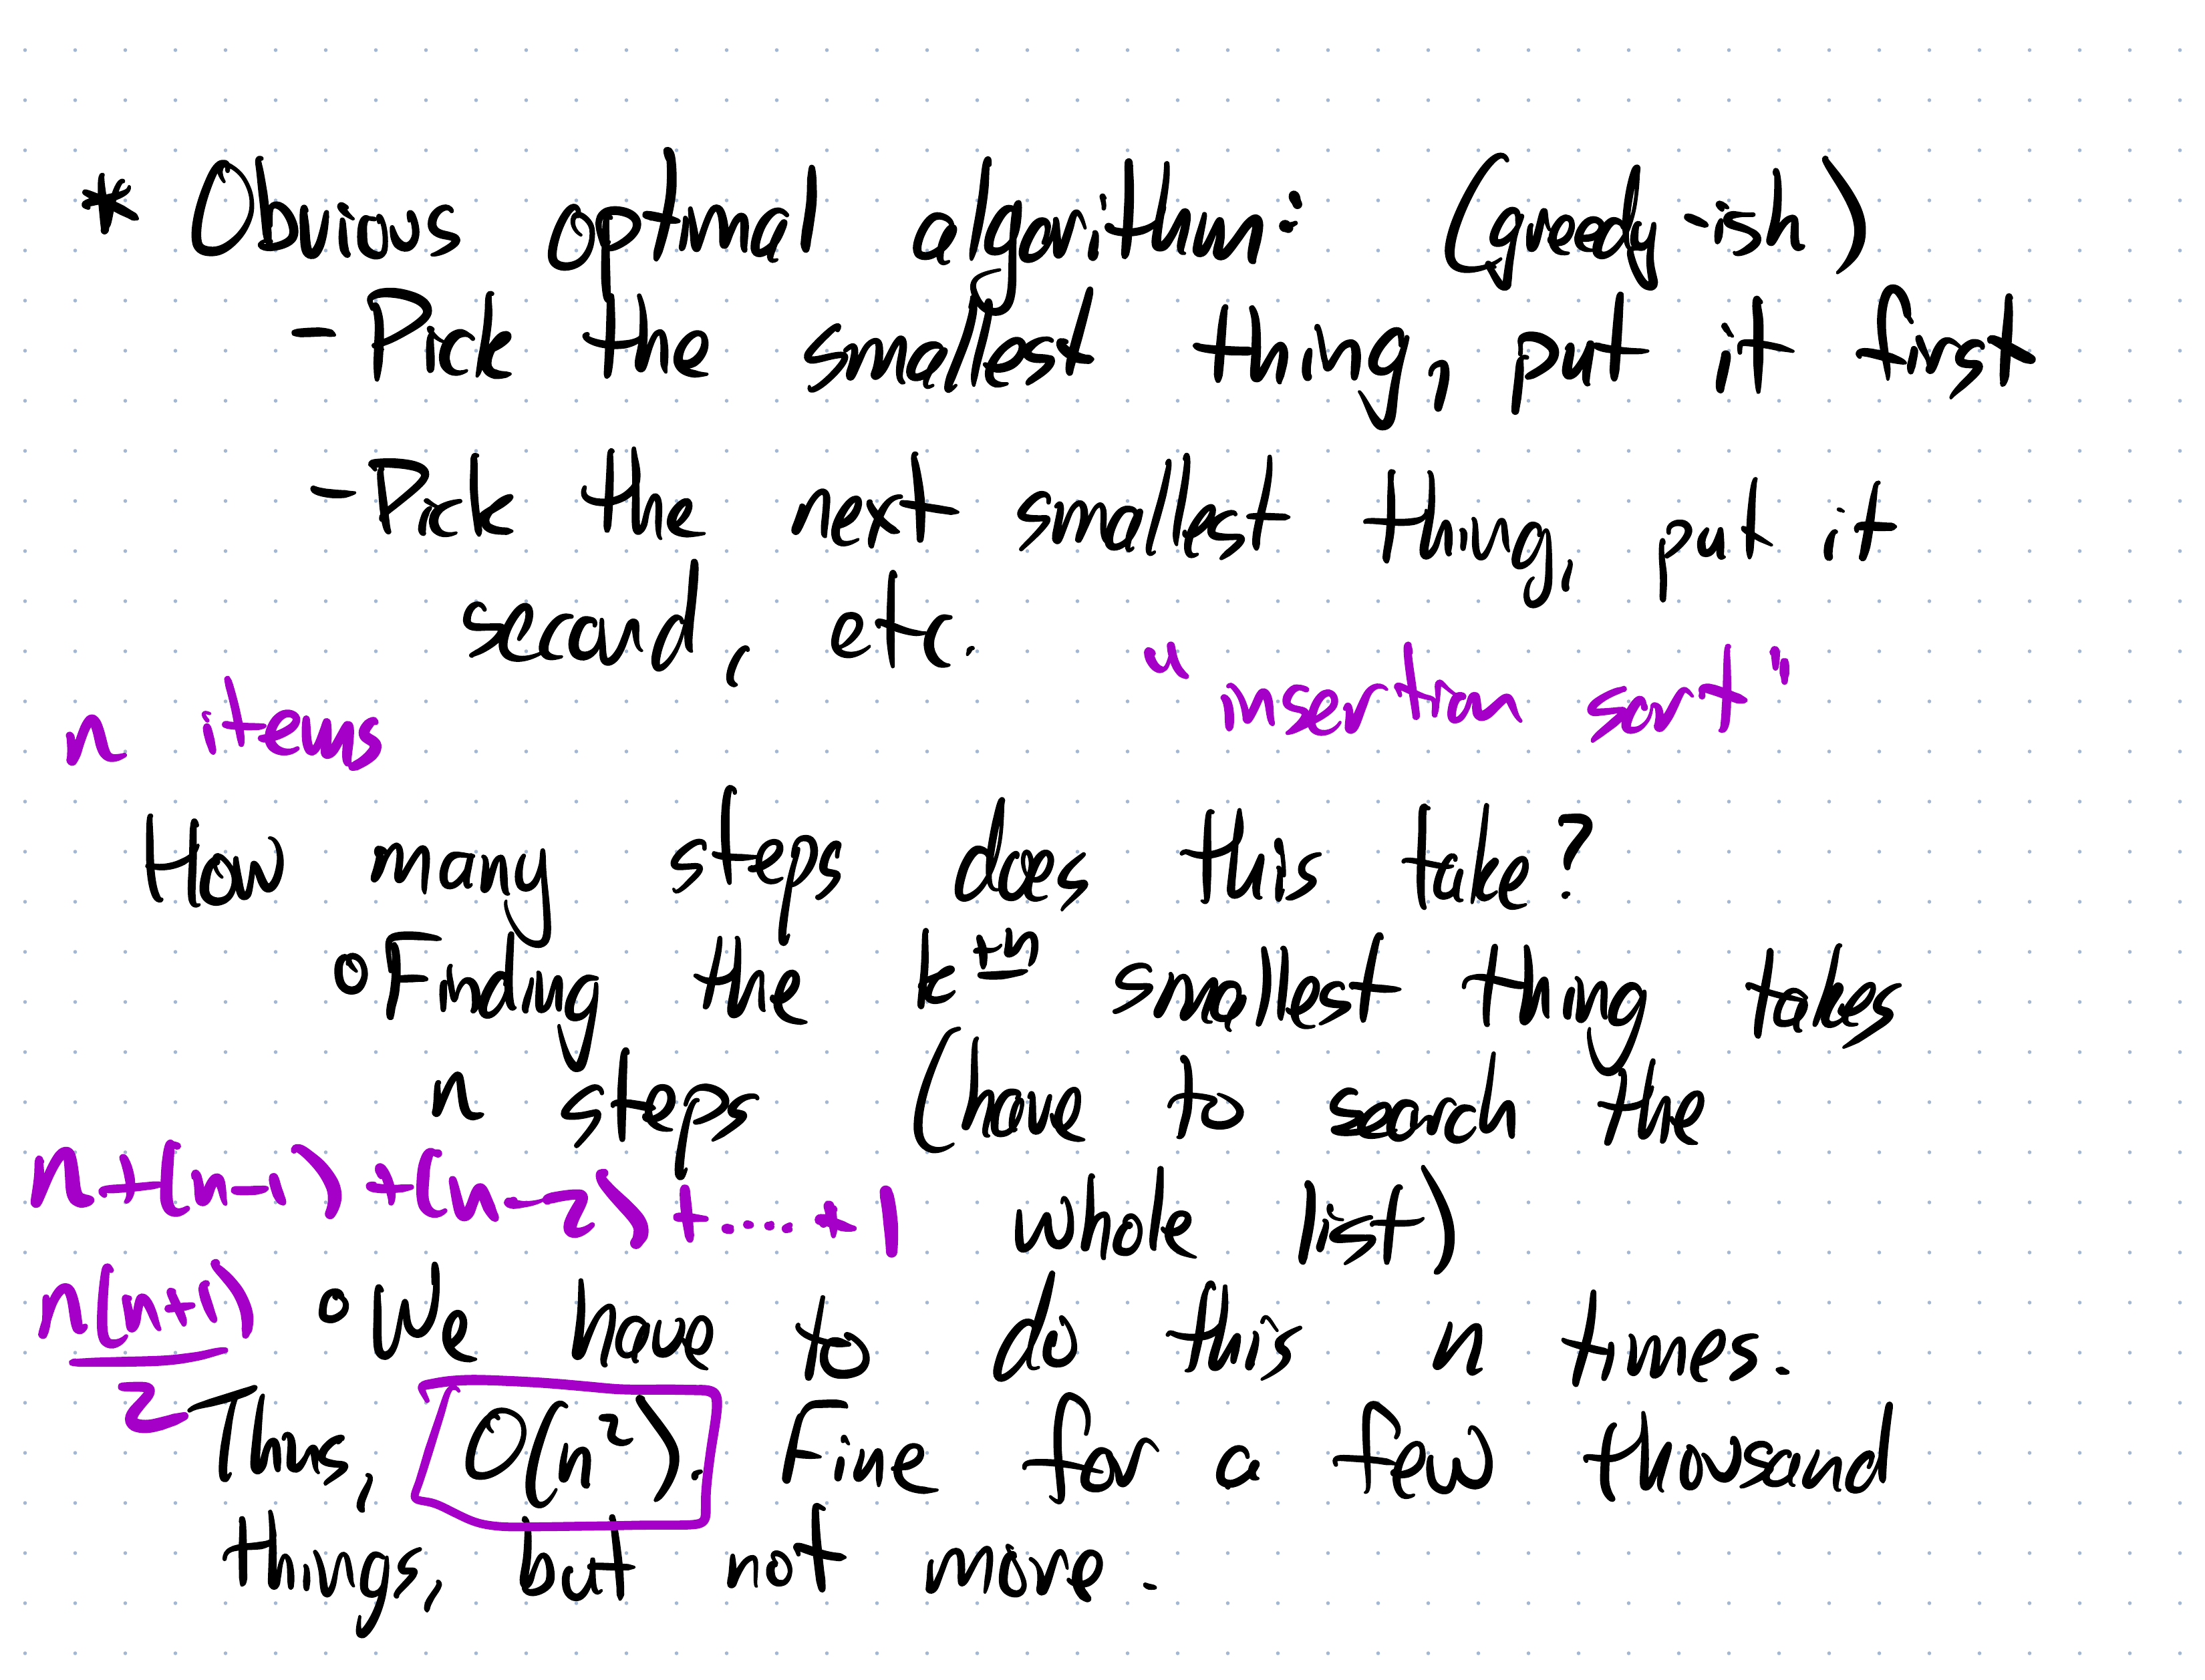 * Obvious optimal algorithm: (greedy-ish)
- Pick the smallest thing, put it first
- Pick the next smallest thing, put it
second, etc.
"insertion sort"
n items
How many steps does this take?
o Finding the kth smallest thing takes
n steps (have to search the
n+(n-1)+(n-2)+.....+1 whole list)
n(n+1)/2 o We have to do this n times.
Thus, O(n²). Fine for a few thousand
things, but not more.